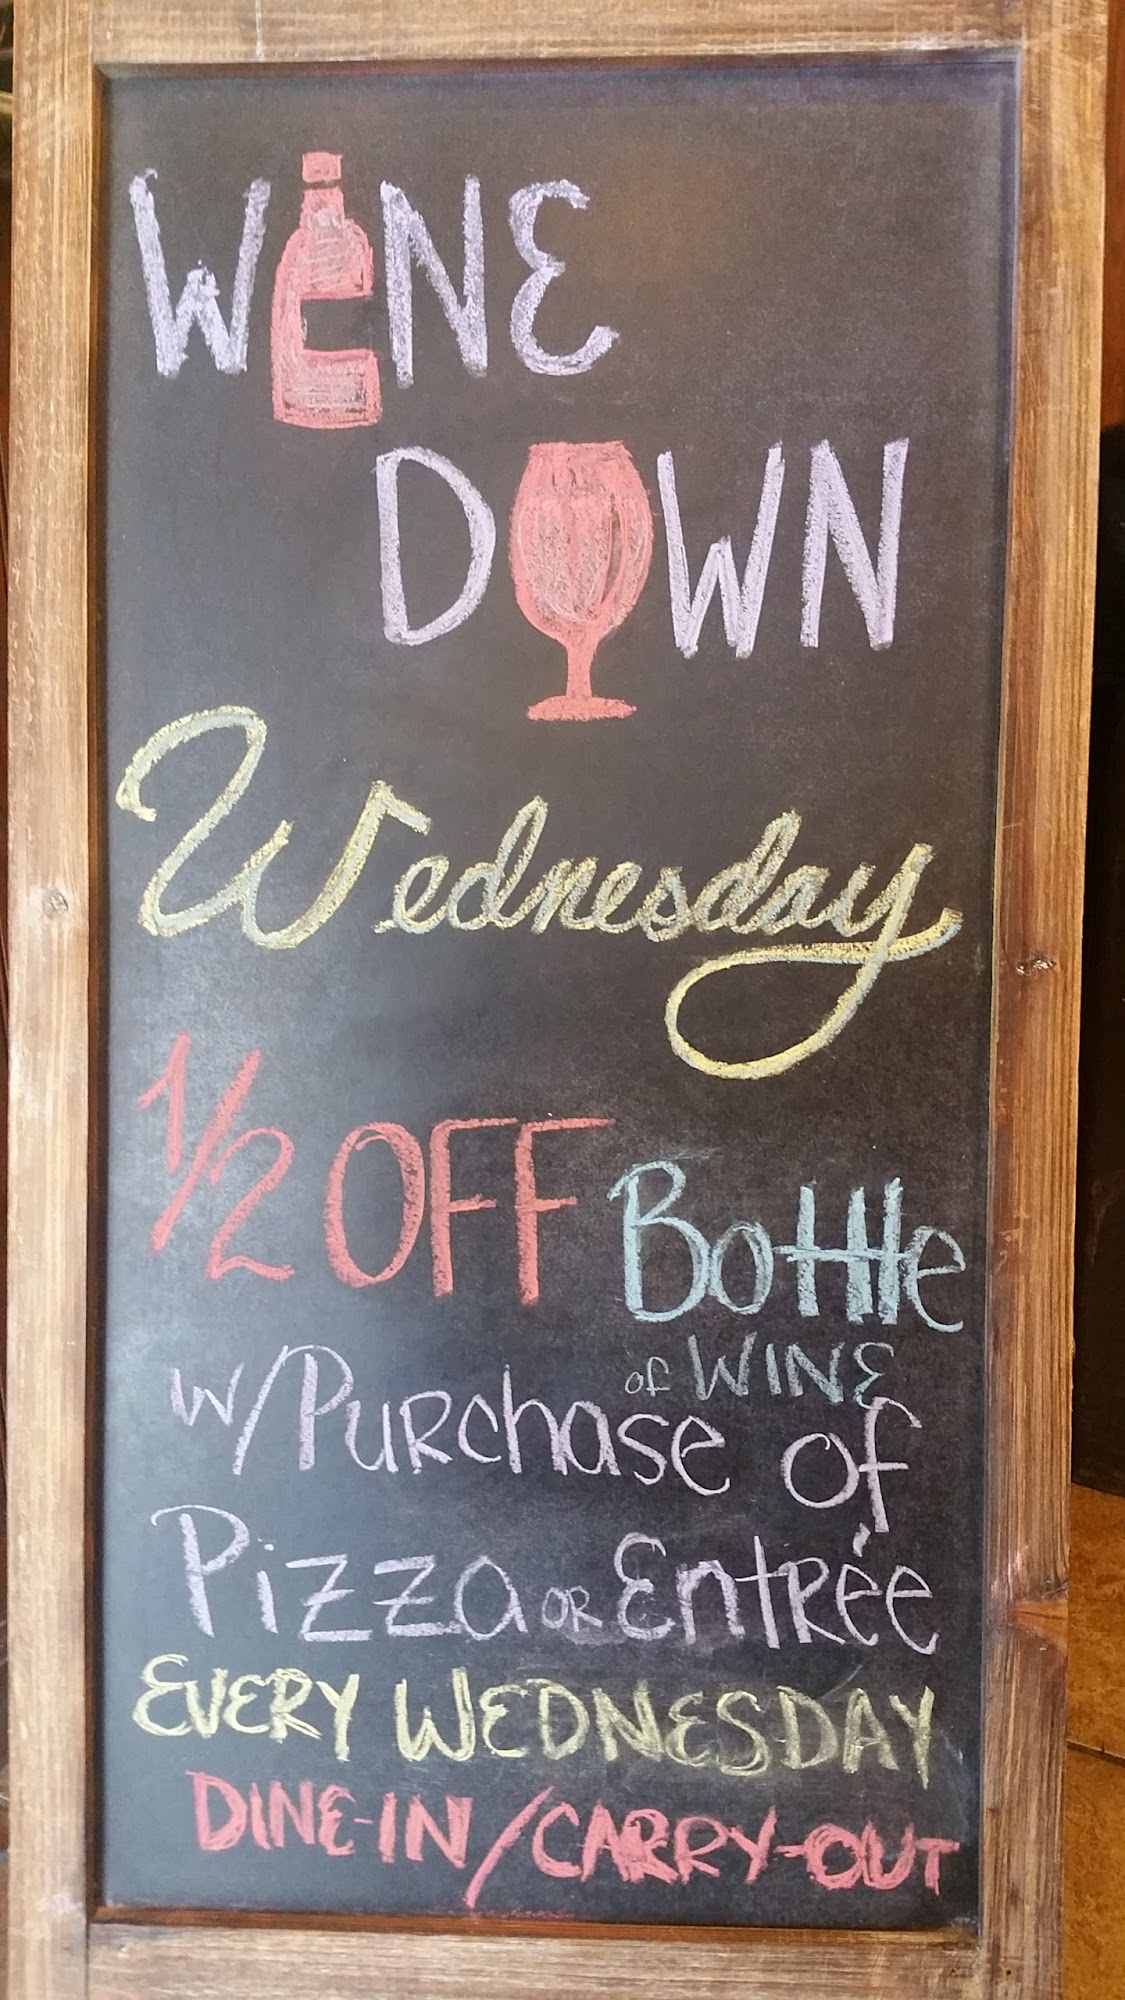 WINE
DOWN
Wednesday
1/2 OFF Bottle
of WINE
w/Purchase of
Pizza or Entrée
EVERY WEDNESDAY
DINE-IN/CARRY-OUT